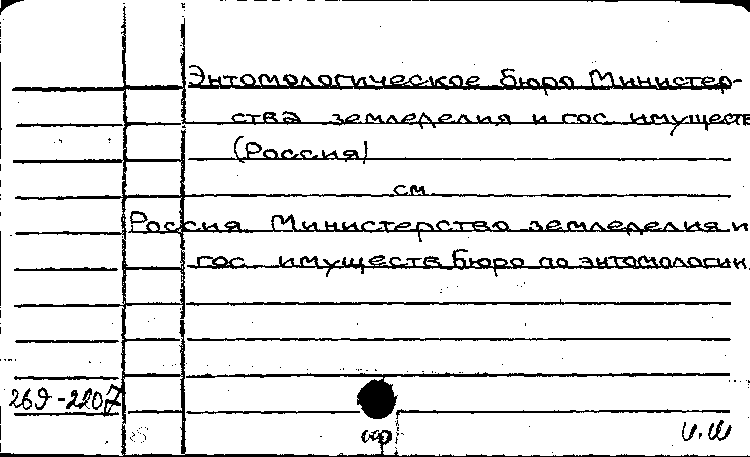 Энтомологическое бюро Министер-
ства земледелия и гос имуществ
(Россия)
см.
Россия. Министерство земледелия и
гос. имуществ. Бюро по энтомологии
269-2207
И.Ш